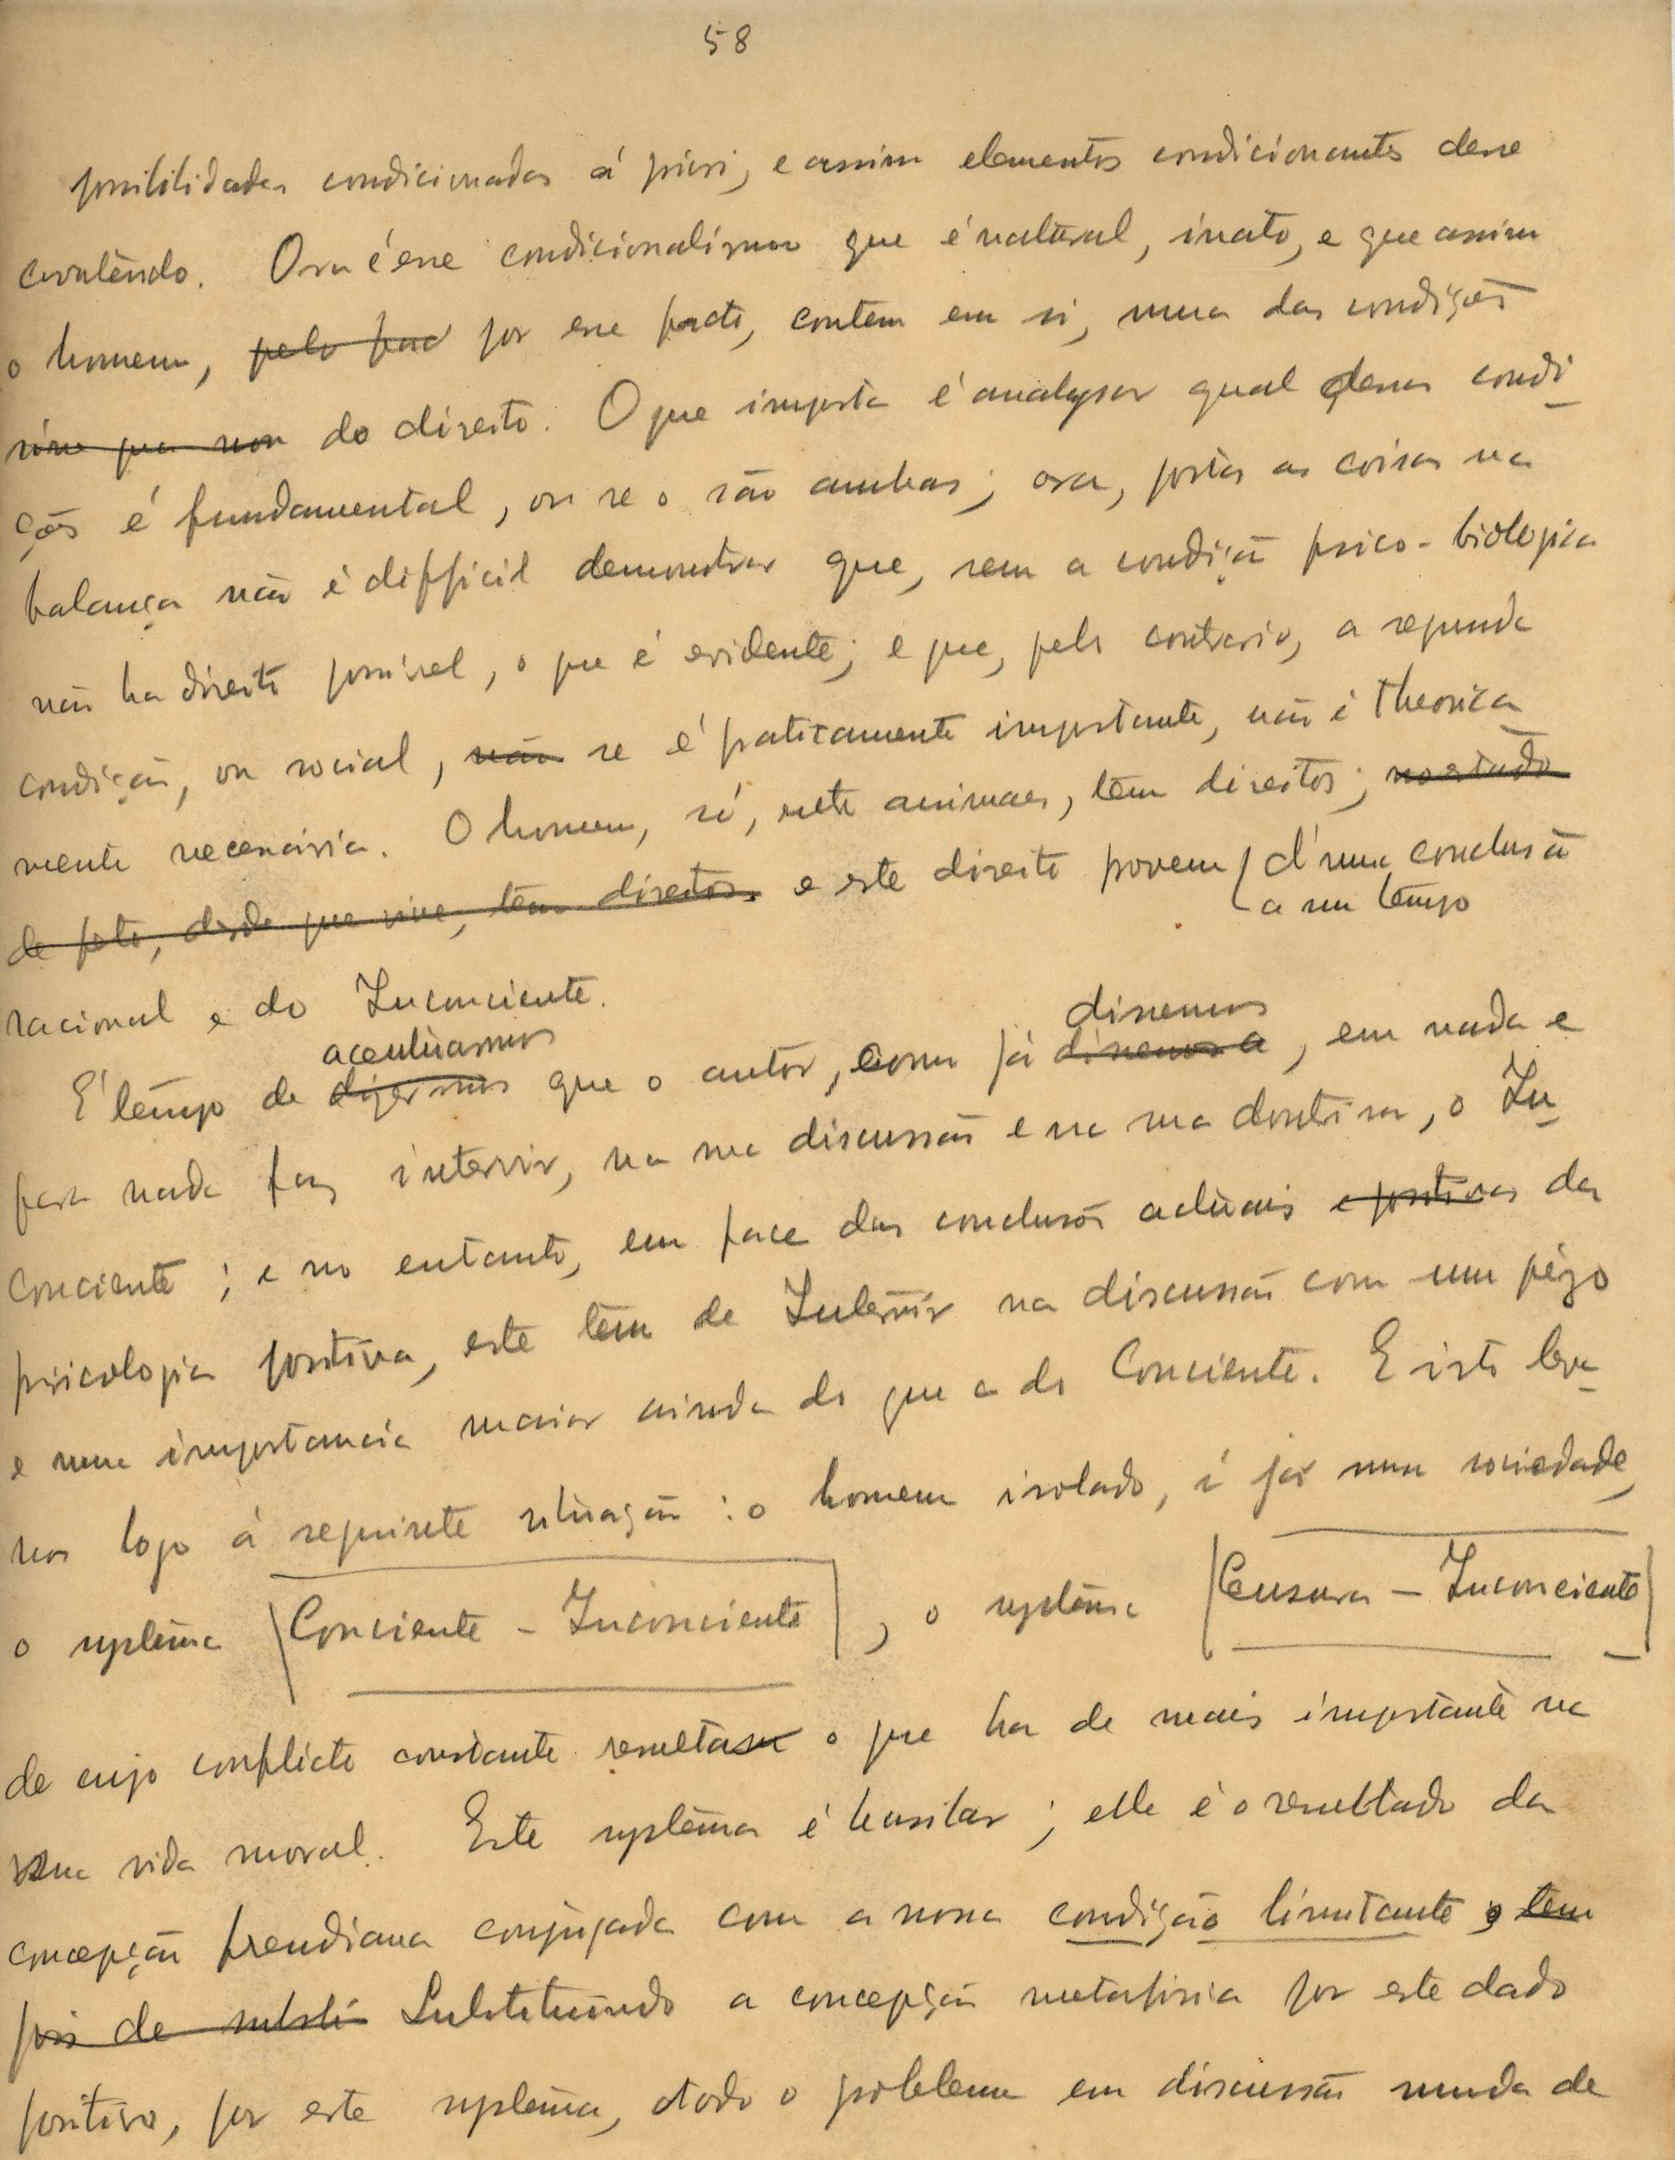 58
possibilidades condicionadas á priori, e assim elementos condicionantes desse
contêudo. Ora é esse condicionalismo que é natural, inato, e que assim
o homem, pelo fac por esse facto, contem em si, uma das condições
sine qua non do direito. O que importa é analysar qual dessas condi-
ções é fundamental, ou se o são ambas; ora, postas as coisas na
balança não é difficil demonstrar que, sem a condição psico-biologica
não ha direito possivel, o que é evidente; e que, pelo contrario, a segunda
condição, ou social, não se é praticamente importante, não é theorica
mente necessária. O homem, só, entre animaes, têm direitos; no estado
de facto, desde que vive, têm direitos. e este direito provem d'uma conclusão
a um tempo
racional e do Inconciente.
acentuarmos
dissemos
É têmpo de dizermos que o autor, como já dissemos a, em nada e
para nada faz intervir, na sua discussão e na sua doutrina, o In-
conciente; e no entanto, em face das conclusões actuais e positivas da
psicologia positiva, este têm de Intervir na discussão com um pêzo
e uma importancia maior ainda do que a do Conciente. E isto leva-
nos logo á seguinte situação: o homem isolado, é já uma sociedade,
o systêma Conciente - Inconciente, o systêma Censura - Inconciente
de cujo conflicto constante resulta o que ha de mais importante na
sua vida moral. Este systêma é basilar; elle é o resultado da
concepção freudiana conjugada com a nossa condição limitante, tem
pois de substi Substituindo a concepção metafisica por este dado
positivo, por este systêma, todo o problema em discussão muda de